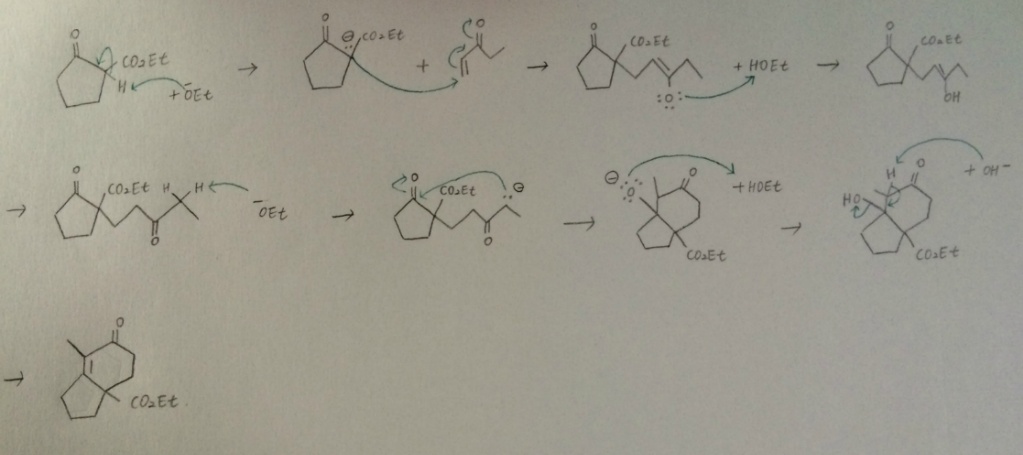 O CO2Et H + -OEt → O ⊖ CO2Et + O → O CO2Et O + HOEt → O CO2Et OH
→ O CO2Et H H O -OEt → O CO2Et O ⊖ → ⊖ O O + HOEt CO2Et → HO H O + OH- CO2Et
→ O CO2Et